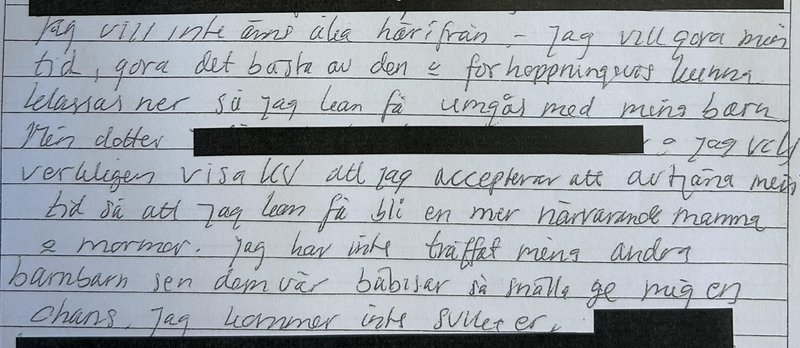 Jag vill inte ens åka härifrån - Jag vill göra min
tid, göra det bästa av den & förhoppningsvis kunna
klassas ner så jag kan få umgås med mina barn
Min dotter & jag vill
verkligen visa KV att jag accepterar att avtjäna min
tid så att jag kan få bli en mer närvarande mamma
& mormor. Jag har inte träffat mina andra
barnbarn sen dem var bäbisar så snälla ge mig en
chans. Jag kommer inte svika er.